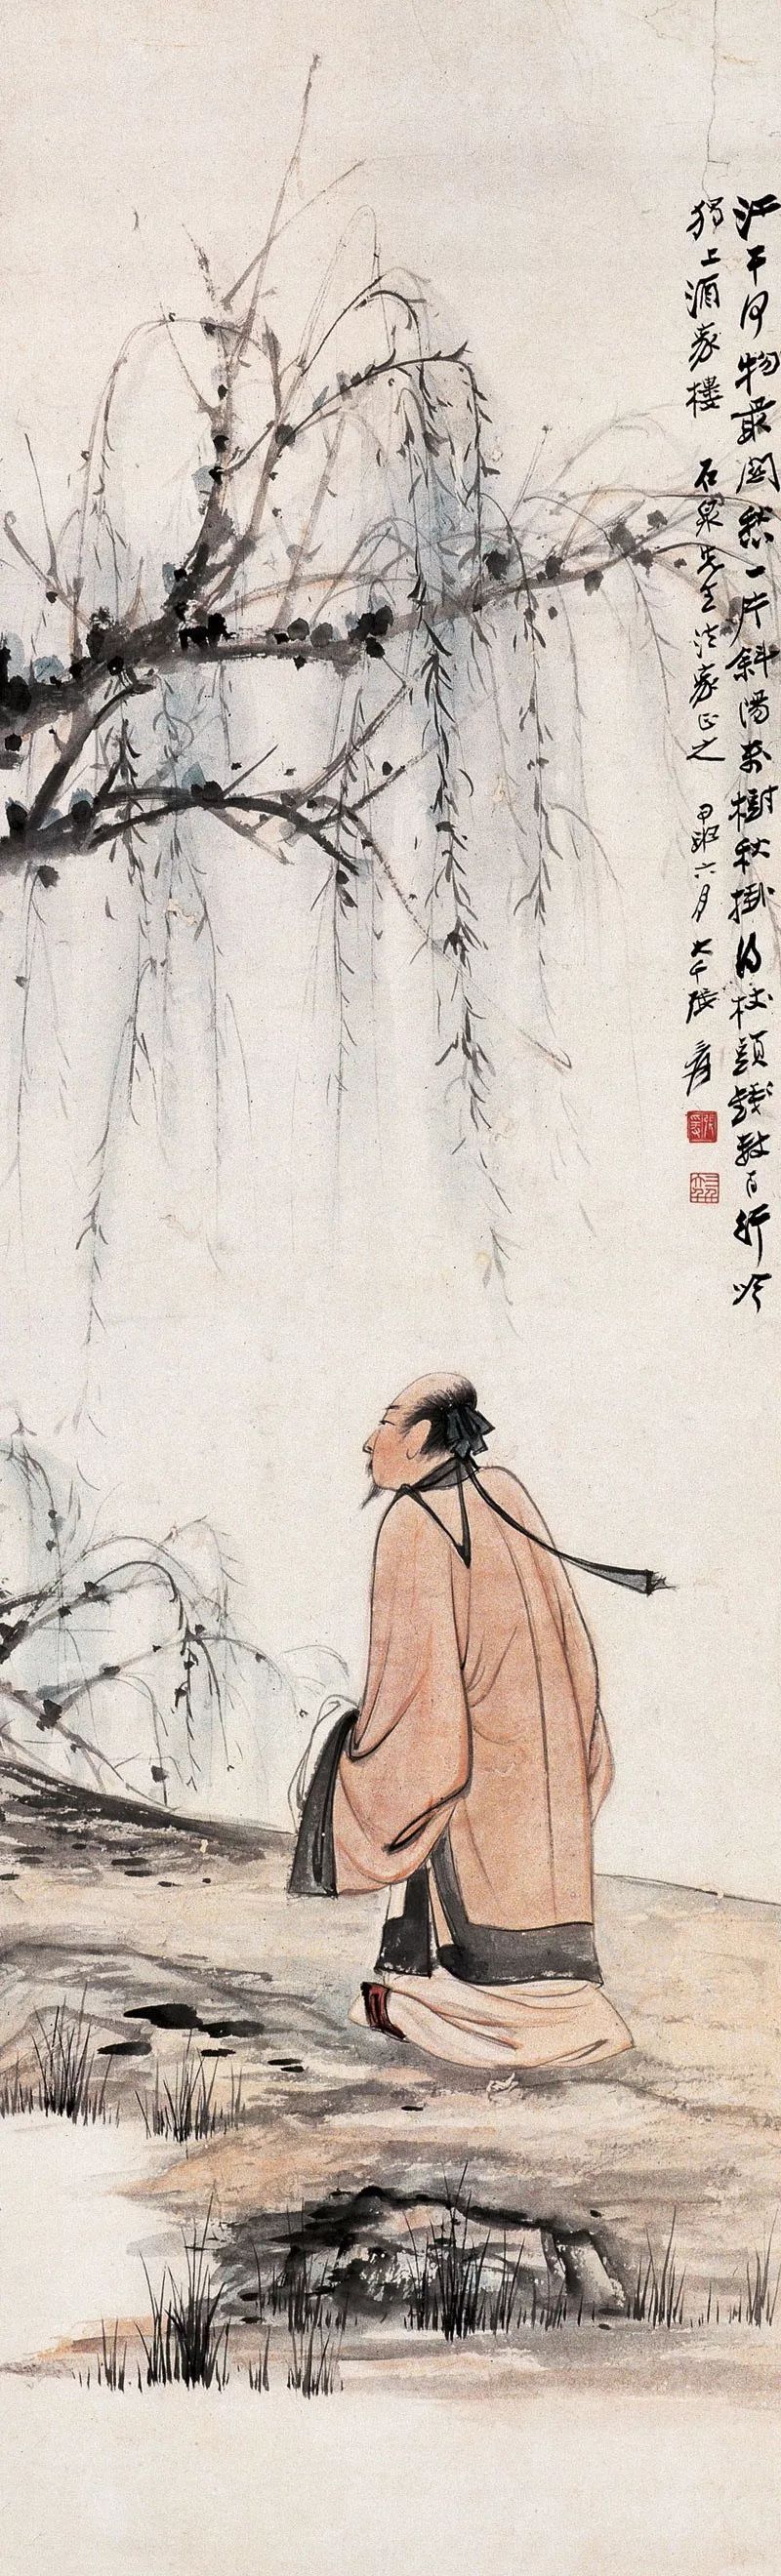 江干何物最關愁一片斜陽萬樹秋掛得杖頭錢數百行吟
獨上酒家樓 石泉先生法家正之 甲申六月 大千張爰